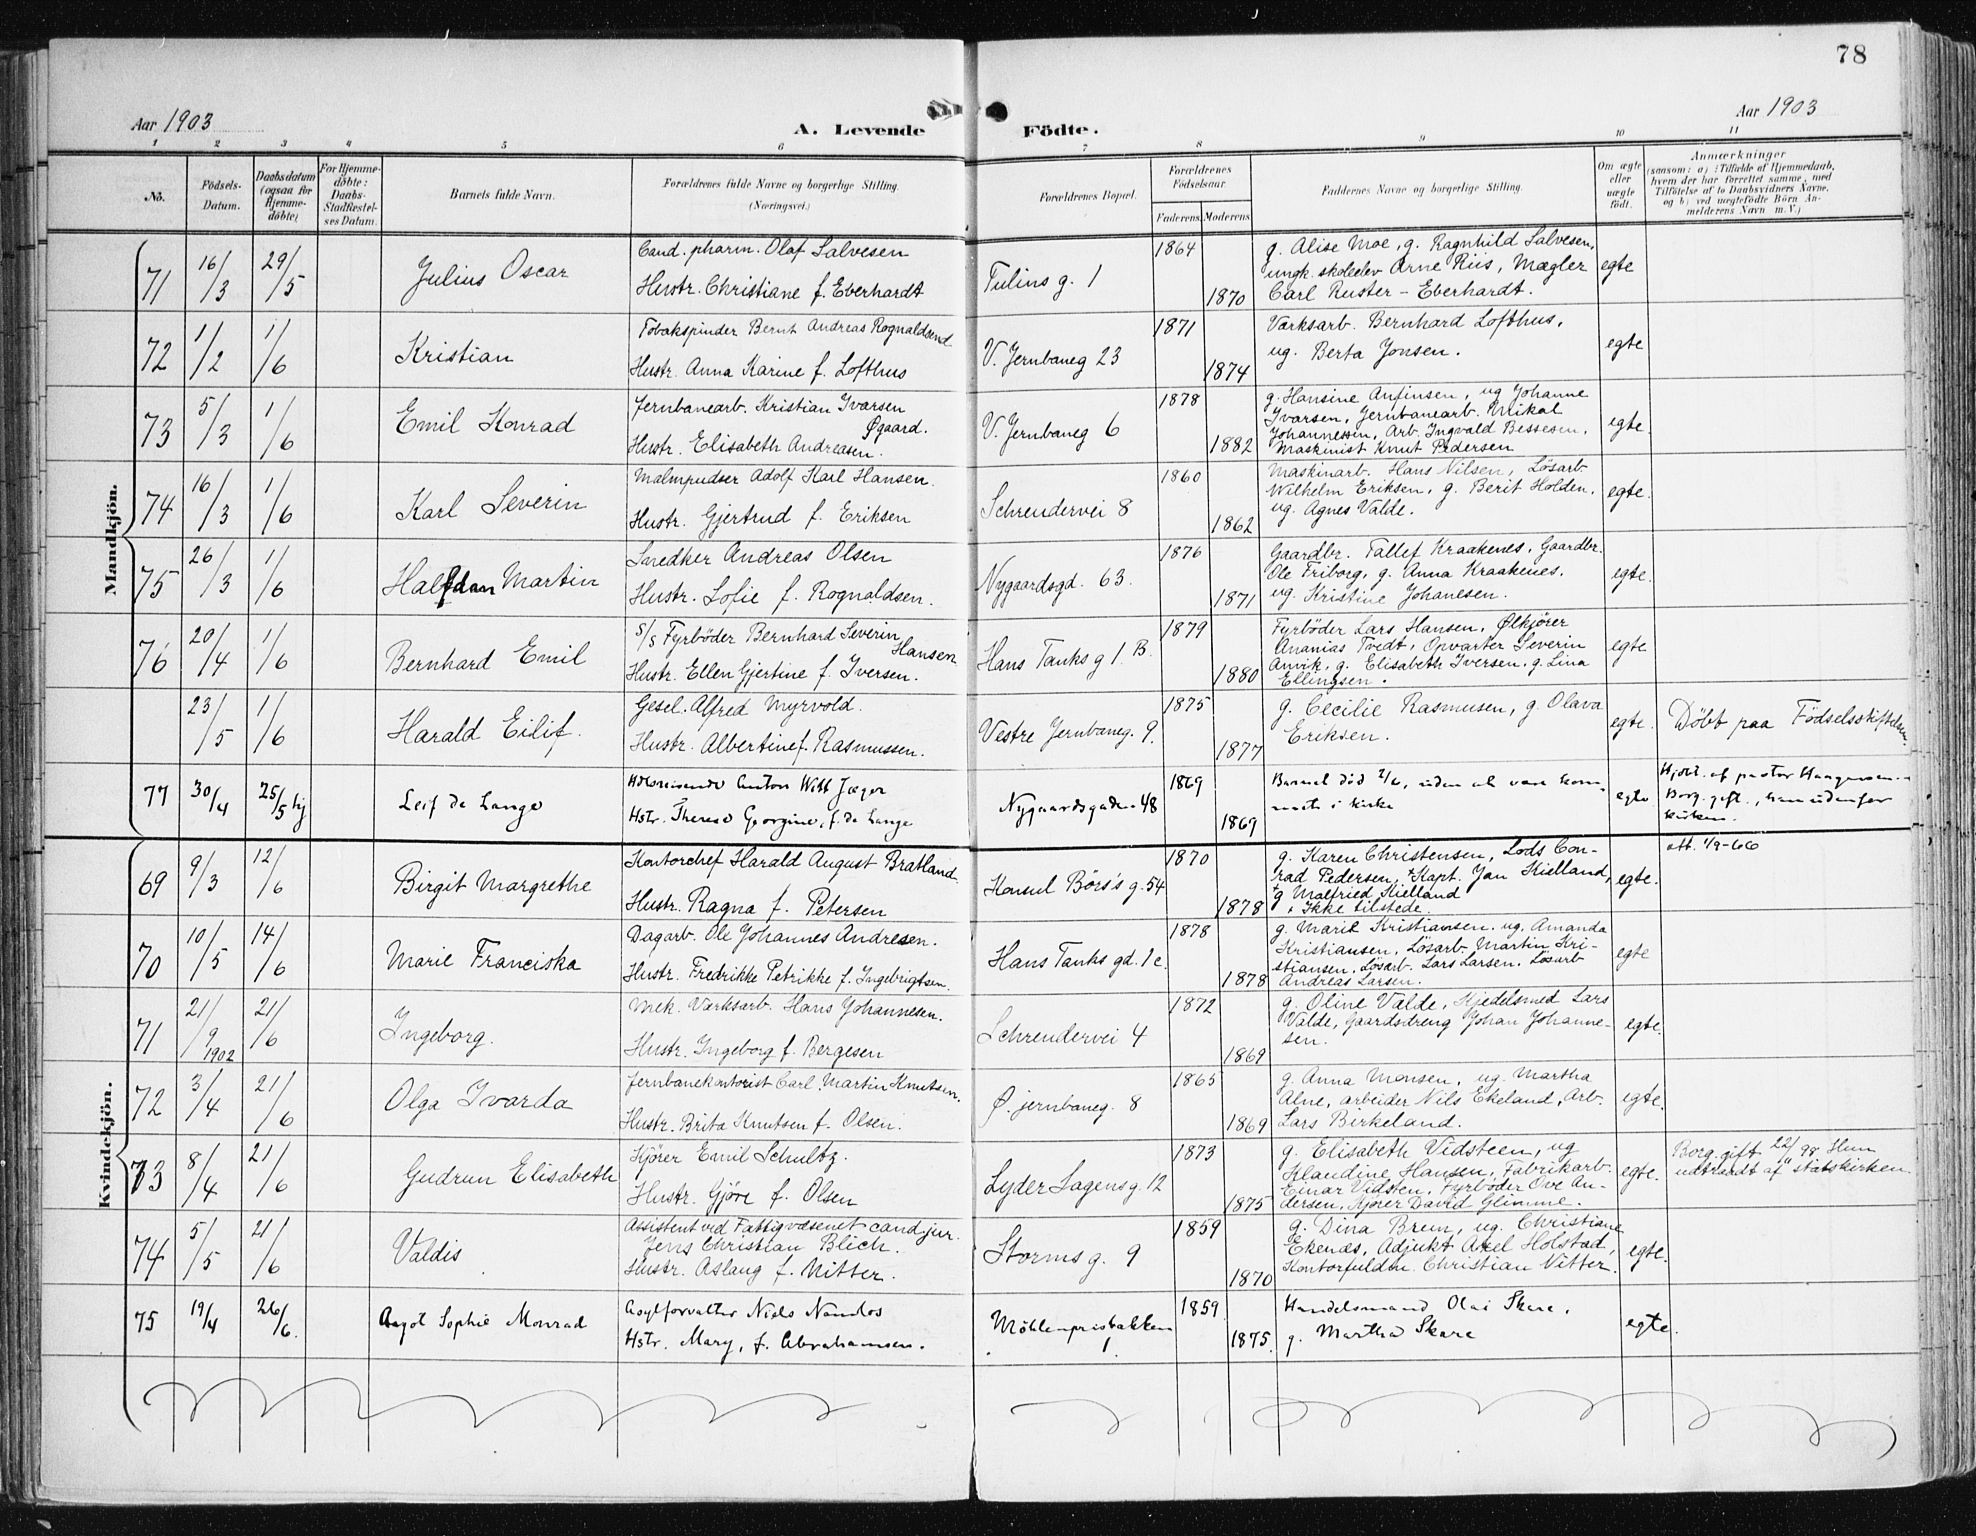 78
Aar 1903
A. Levende Födte.
Aar 1903
1 2 3 4 5 6 7 8 9 10 11
No.
Födsels-Datum.
Daabsdatum (ogsaa for Hjemme-döbte)
For Hjemme-döbte: Daabs-Stadfæstel-ses Datum.
Barnets fulde Navn.
Forældrenes fulde Navne og borgerlige Stilling. (Næringsvei.)
Forældrenes Bopæl.
Forældrenes Födselsaar.
Faderens. Moderens.
Faddernes Navne og borgerlige Stilling.
Om ægte eller uægte födt.
Anmærkninger
(saasom: a) i Tilfælde af Hjemmedaab,
hvem der har forrettet samme, med
Tilföielse af to Daabsvidners Navne,
og b) ved uægtefödte Börn An-
melderens Navn m. V.)
Mandkjön.
71 16/3 29/5 Julius Oscar
Cand. pharm. Olaf Salvesen
Hustr. Christiane f. Eberhardt
Tulins g. 1
1864
1870
g. Alise Moe, g. Ragnhild Salvesen,
ungk. skoleelev Arne Riis, Mægler
Carl Ruster-Eberhardt.
egte
72 1/2 1/6 Kristian
Tobakspinder Bernt Andreas Rognaldsend
Hustr. Anna Karine f. Lofthus
V. Jernbaneg 23
1871
1874
Værksarb. Bernhard Lofthus,
ug. Berta Jonsen.
egte
73 5/3 1/6 Emil Konrad
Jernbanearb. Kristian Ivarsen
Øgaard.
Hustr. Elisabeth Andreasen.
V. Jernbaneg 6
1878
1882
g. Hansine Anfinsen, ug Johanne
Ivarsen, Jernbanearb. Mikal
Johannessen, Arb. Ingvald Bessesen,
Maskinist Knut Pedersen
egte.
74 16/3 1/6 Karl Severin
Malmpudser Adolf Karl Hansen.
Hustr. Gjertrud f. Eriksen
Schreudervei 8
1860
1862
Maskinarb. Hans Nilsen, Lösarb
Wilhelm Eriksen, g. Berit Holden,
ug. Agnes Valde.
egte.
75 26/3 1/6 Halfdan Martin
Snedker Andreas Olsen
Hustr. Sofie f. Rognaldsen.
Nygaardsgd. 63.
1876
1871
Gaardbr. Tallef Kraakenes, Gaardbr.
Ole Friborg, g. Anna Kraakenes,
ug. Kristine Johanesen.
egte.
76 20/4 1/6 Bernhard Emil
s/s Fyrböder Bernhard Severin
Hansen
Hustr. Ellen Gjertine f. Iversen.
Hans Tanks g 1. B.
1879
1880
Fyrböder Lars Hansen, Ølkjörer
Ananias Tvedt, Opvarter Severin
Anvik, g. Elisabeth Iversen, g. Lina
Ellingsen.
egte
23/5 1/6 Harald Eilif.
Gesel. Alfred Myrvold.
Hustr. Albertine f. Rasmussen.
Vestre Jernbaneg. 9.
1875
1877
g. Cecilie Rasmusen, g Olava
Eriksen.
egte.
Döbt paa Födselsstiftelsen.
77 30/4 25/5 hj Leif de Lange
Anton Witt Jæger
Hstr. Therese Georgine, f. de Lange
Nygaardsgaden 48
1869
1869
Barnet död 2/6, uden at være kom-
met i kirke
egte
Hjdbt. af pastor Haagensen.
Borg. gift, han udenfor
kirken.
att. 1/9-66
Kvindekjön.
69 9/3 12/6 Birgit Margrethe
Kontorchef Harald August Bratland.
Hustr. Ragna f. Petersen
Konsul Börs's g. 54
1870
1878
g. Karen Christensen, Lods Con-
rad Pedersen, +Kapt. Jan Kielland,
+g Malfried Kielland
+ Ikke tilstede.
egte.
70 10/5 14/6 Marie Franciska
Dagarb. Ole Johannes Andresen.
Hustr. Fredrikke Petrikke f. Ingebrigtsen.
Hans Tanks gd. 1c.
1878
1878
g. Marie Kristiansen. ug. Amanda
Kristiansen, Lösarb. Martin Kri-
stiansen, Lösarb. Lars Larsen, Lösarb
Andreas Larsen.
egte
71 21/9 1902 21/6 Ingeborg.
Mek. Værksarb. Hans Johannesen.
Hustr. Ingeborg f. Bergesen
Schreudervei 4
1872
1869
g. Oline Valde, Kjedelsmed Lars
Valde, Gaardsdreng Johan Johanne-
sen.
egte.
72 3/4 21/6 Olga Ivarda
Jernbanekontorist Carl Martin Knutsen.
Hustr. Brita Knutsen f. Olsen.
Ø. jernbaneg. 8
1865
1869
g. Anna Monsen, ug. Martha
Alne, arbeider Nils Ekeland, Arb.
Lars Birkeland.
egte.
73 8/4 21/6 Gudrun Elisabeth
Kjörer Emil Schultz.
Hustr. Gjöre f. Olsen
Lyder Sagens g. 12
1873
1875
g. Elisabeth Vidsteen, ug
Klaudine Hansen, Fabrikarb.
Einar Vidsten, Fyrböder Ove An-
dersen, Kjörer David Glimme.
egte.
Borg. gift 22/ 98 Hun
udtraadt af statskirken.
74 5/5 21/6 Valdis
Assistent ved Fattigvæsenet cand jur.
Jens Christian Blich.
Hustr. Aslaug f. Nitter.
Storms g. 9
1859
1870
g. Dina Brun, ug. Christiane
Ekenæs, Adjunkt Axel Holstad,
Kontorfuldm. Christian Vitter.
egte.
75 19/4 26/6. Aagot Sophie Monrad
Asylforvalter Niels Nændos
Hstr. Mary, f. Abrahamsen.
Möhlenprisbakken
1.
1859
1875.
Handelsmand Olai Skare,
g. Martha Skare
egte.